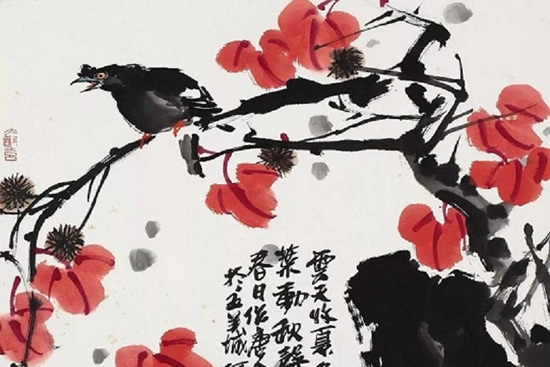 雲天收夏
葉動秋聲
春日作唐
於五羊城